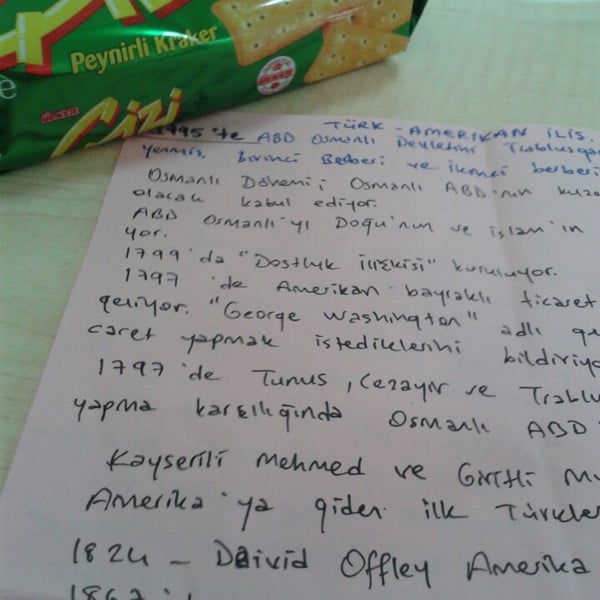 Peynirli Kraker
ÜLKER
Çizi
TÜRK-AMERİKAN İLİŞ.
1795'te ABD Osmanlı Devletini Trablusga
yenmiş. Birinci Berberi ve ikinci berberi
Osmanlı Dönemi; Osmanlı ABD'nin kuze
olacak kabul ediyor.
ABD Osmanlı'yı Doğu'nun ve İslam'ın
yor.
1799'da "Dostluk ilişkisi" kuruluyor.
1797'de Amerikan bayraklı ticaret
geliyor. "George Washington" adlı ge
caret yapmak istediklerini bildiriyo
1797'de Tunus, Cezayir ve Trablu
yapma karşılığında Osmanlı ABD
Kayserili Mehmed ve Giritli Mu
Amerika'ya giden ilk Türkler
1824 - David Offley Amerika
1862'